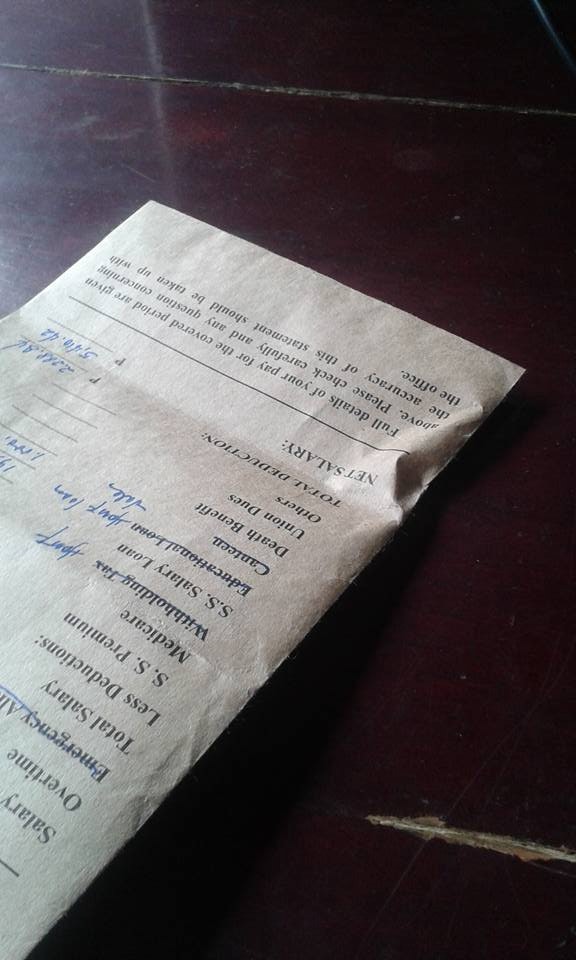 Salary
Overtime
Emergency
Total Salary
Less Deductions:
S. S. Premium
Medicare
Withholding Tax
S.S. Salary Loan
Educational Loan loan
Canteen
Death Benefit
Union Dues
Others
TOTAL DEDUCTION: P
NET SALARY: P
Full details of your pay for the covered period are given
above. Please check carefully and any question concerning
the accuracy of this statement should be taken up with
the office.